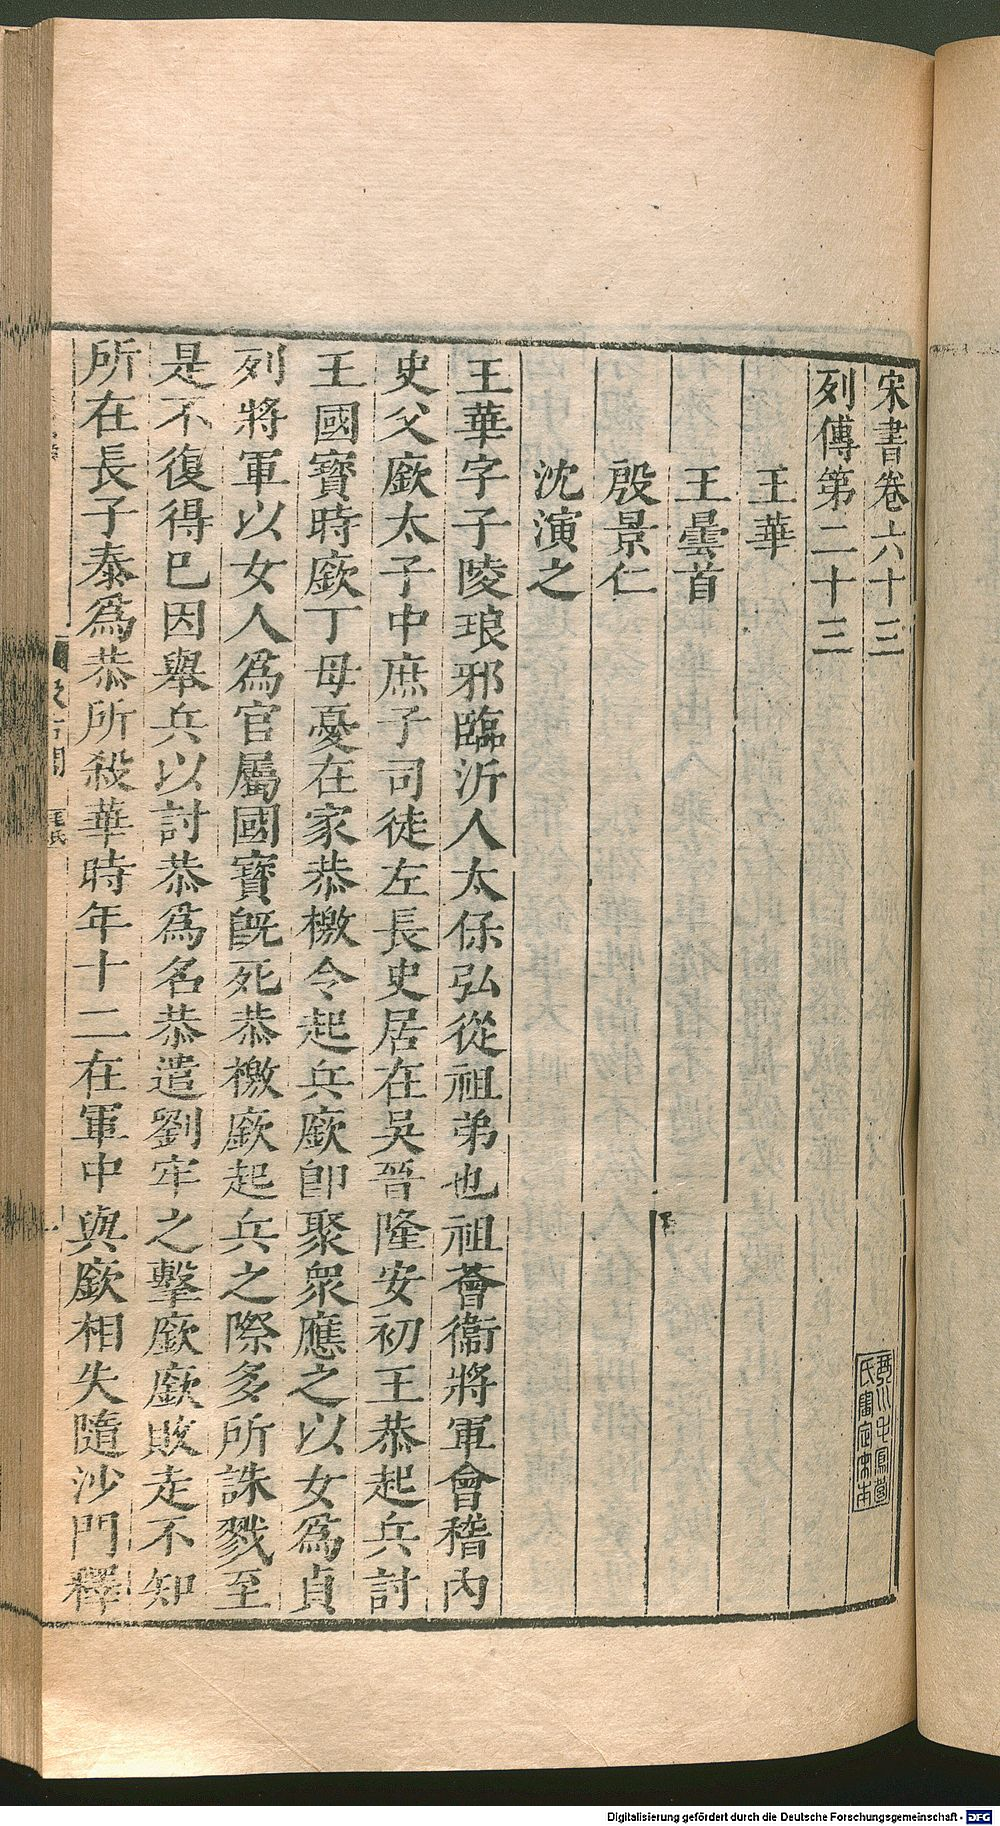 宋書卷六十三
列傳第二十三
王華
王曇首
殷景仁
沈演之
王華字子陵琅邪臨沂人太保弘從祖弟也祖薈衞將軍會稽內
史父廞太子中庶子司徒左長史居在吳晉隆安初王恭起兵討
王國寶時廞丁母憂在家恭檄令起兵廞卽聚衆應之以女爲貞
列將軍以女人爲官屬國寶旣死恭檄廞起兵之際多所誅戮至
是不復得已因舉兵以討恭爲名恭遣劉牢之擊廞廞敗走不知
所在長子泰爲恭所殺華時年十二在軍中與廞相失隨沙門釋
汲古閣
毛氏
琴川毛鳳苞
氏審定宋本
Digitalisierung gefördert durch die Deutsche Forschungsgemeinschaft - DFG